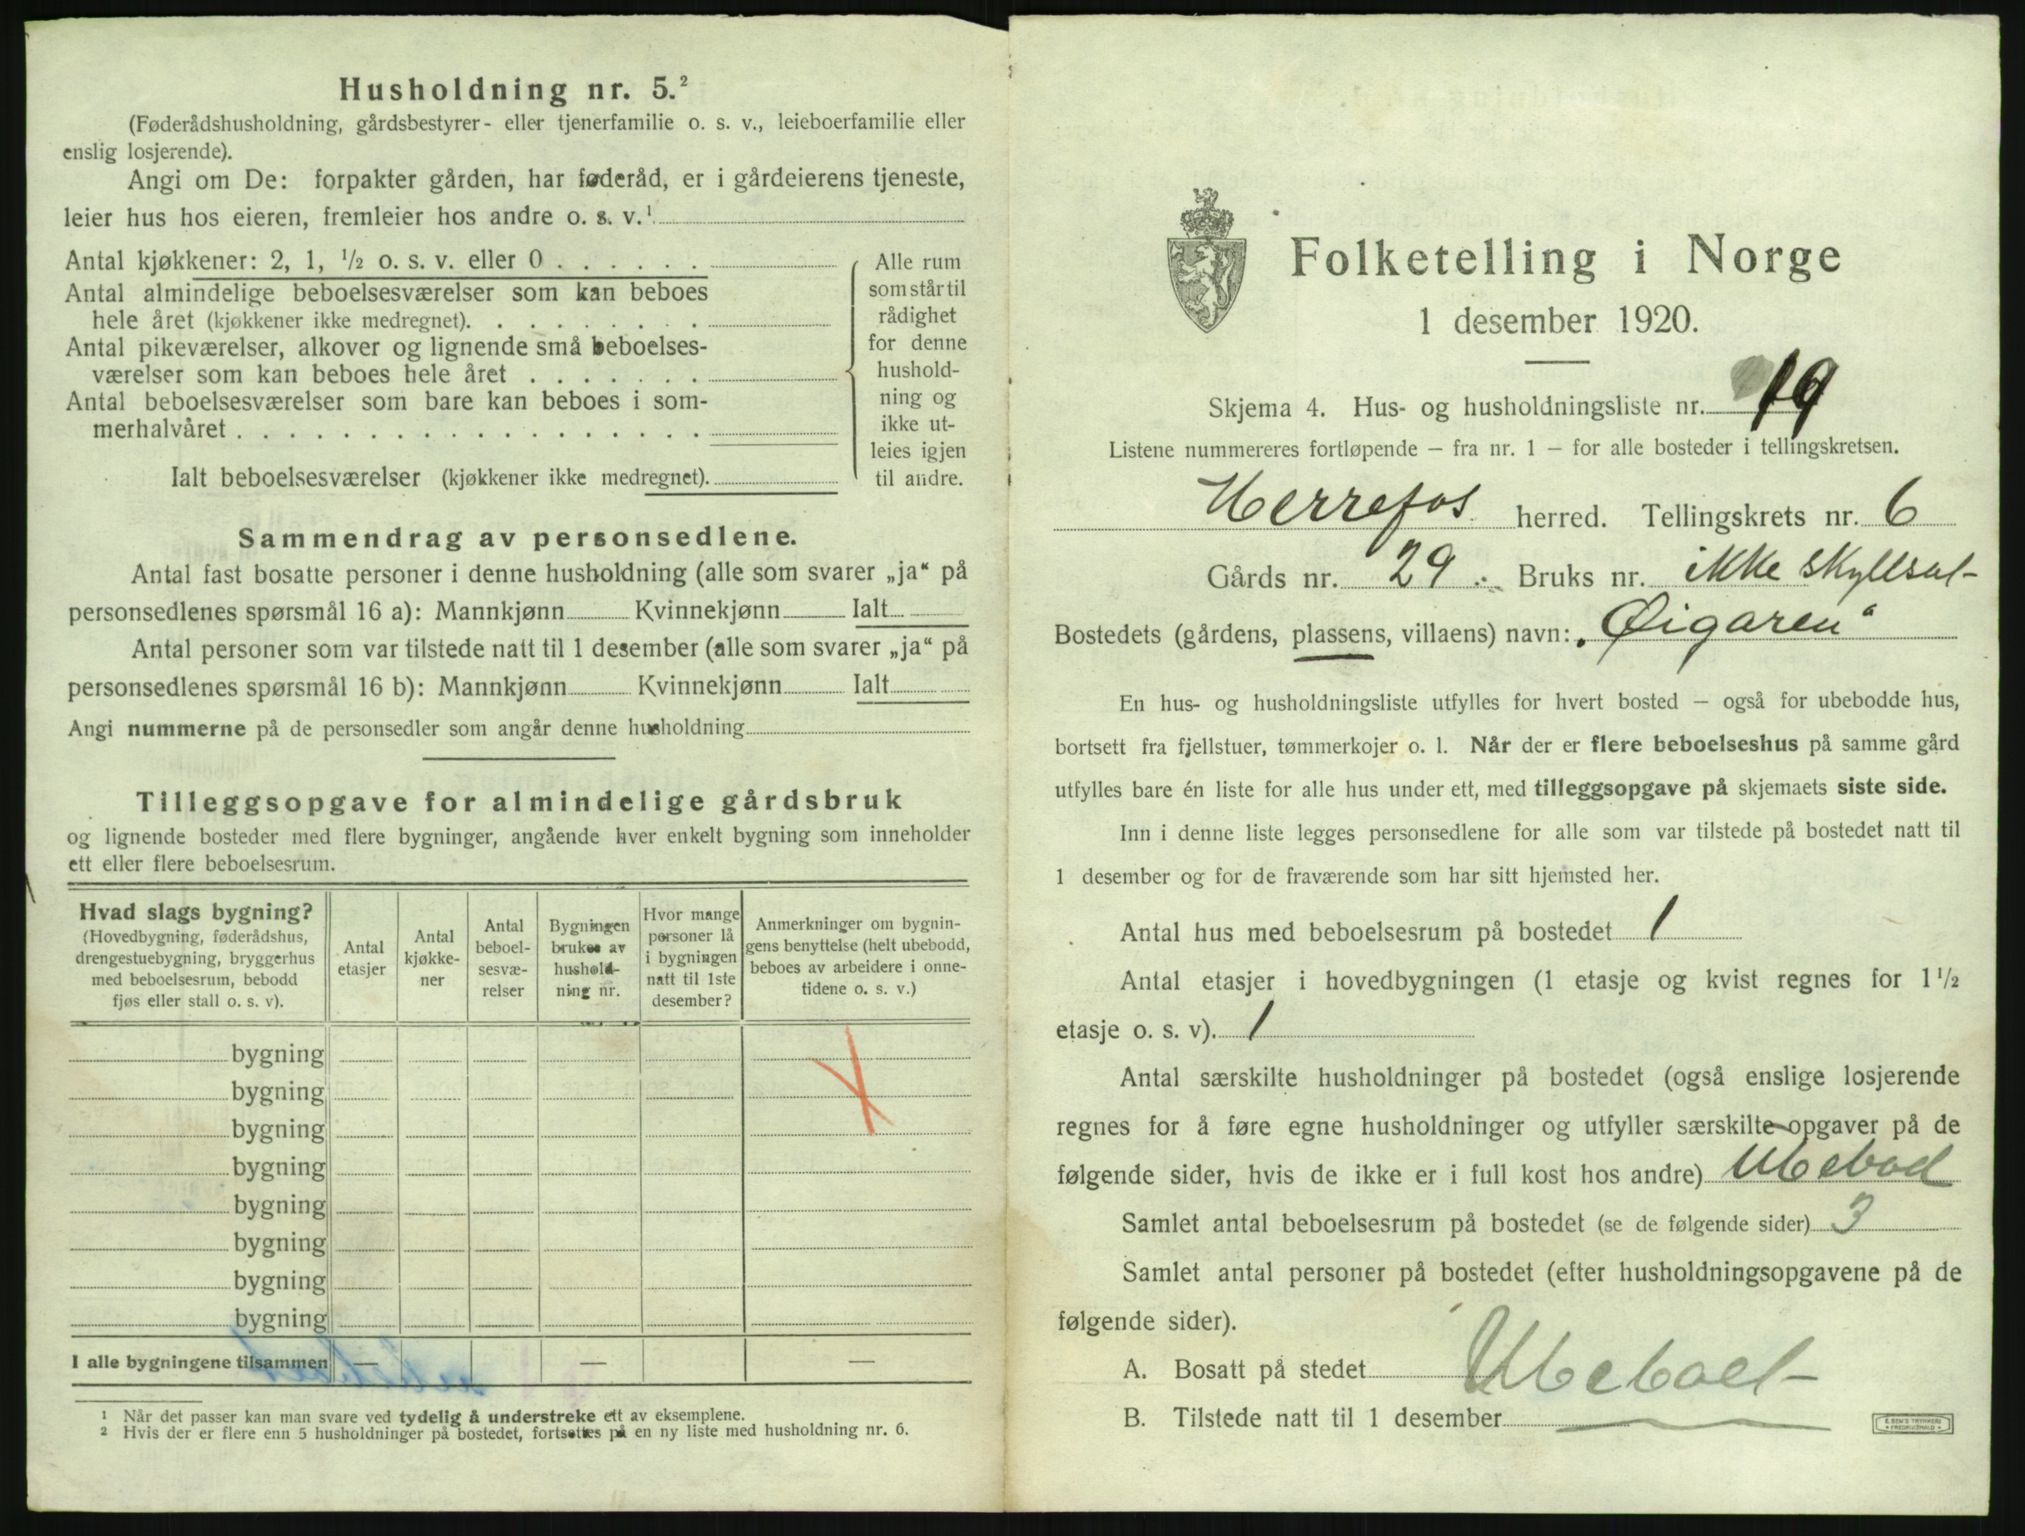 Husholdning nr. 5.²
(Føderådshusholdning, gårdsbestyrer- eller tjenerfamilie o. s. v., leieboerfamilie eller
enslig losjerende).
Angi om De: forpakter gården, har føderåd, er i gårdeierens tjeneste,
leier hus hos eieren, fremleier hos andre o. s. v.¹
Antal kjøkkener: 2, 1, ½ o. s. v. eller 0
Antal almindelige beboelsesværelser som kan beboes
hele året (kjøkkener ikke medregnet).
Antal pikeværelser, alkover og lignende små beboelses-
værelser som kan beboes hele året
Antal beboelsesværelser som bare kan beboes i som-
merhalvåret
Ialt beboelsesværelser (kjøkkener ikke medregnet).
Alle rum
som står til
rådighet
for denne
hushold-
ning og
ikke ut-
leies igjen
til andre.
Sammendrag av personsedlene.
Antal fast bosatte personer i denne husholdning (alle som svarer „ja“ på
personsedlenes spørsmål 16 a): Mannkjønn Kvinnekjønn Ialt
Antal personer som var tilstede natt til 1 desember (alle som svarer „ja“ på
personsedlenes spørsmål 16 b): Mannkjønn Kvinnekjønn Ialt
Angi nummerne på de personsedler som angår denne husholdning
Tilleggsopgave for almindelige gårdsbruk
og lignende bosteder med flere bygninger, angående hver enkelt bygning som inneholder
ett eller flere beboelsesrum.
Hvad slags bygning?
(Hovedbygning, føderådshus,
drengestuebygning, bryggerhus
med beboelsesrum, bebodd
fjøs eller stall o. s. v).
Antal
etasjer
Antal
kjøkke-
ner
Antal
beboel-
sesvæ-
relser
Bygningen
brukes av
hushold-
ning nr.
Hvor mange
personer lå
i bygningen
natt til 1ste
desember?
Anmerkninger om bygnin-
gens benyttelse (helt ubebodd,
beboes av arbeidere i onne-
tidene o. s. v.)
bygning
bygning
bygning
bygning
bygning
bygning
bygning
bygning
I alle bygningene tilsammen — — —
¹ Når det passer kan man svare ved tydelig å understreke ett av eksemplene.
² Hvis der er flere enn 5 husholdninger på bostedet, fortsettes på en ny liste med husholdning nr. 6.
Folketelling i Norge
1 desember 1920.
Skjema 4. Hus- og husholdningsliste nr. 19
Listene nummereres fortløpende – fra nr. 1 – for alle bosteder i tellingskretsen.
Herrefos herred. Tellingskrets nr. 6
Gårds nr. 29 Bruks nr. ikke skyllsat-
Bostedets (gårdens, plassens, villaens) navn: „Øigaren“
En hus- og husholdningsliste utfylles for hvert bosted – også for ubebodde hus,
bortsett fra fjellstuer, tømmerkojer o. l. Når der er flere beboelseshus på samme gård
utfylles bare én liste for alle hus under ett, med tilleggsopgave på skjemaets siste side.
Inn i denne liste legges personsedlene for alle som var tilstede på bostedet natt til
1 desember og for de fraværende som har sitt hjemsted her.
Antal hus med beboelsesrum på bostedet 1
Antal etasjer i hovedbygningen (1 etasje og kvist regnes for 1½
etasje o. s. v). 1
Antal særskilte husholdninger på bostedet (også enslige losjerende
regnes for å føre egne husholdninger og utfyller særskilte opgaver på de
følgende sider, hvis de ikke er i full kost hos andre) Ubebod
Samlet antal beboelsesrum på bostedet (se de følgende sider) 3
Samlet antal personer på bostedet (efter husholdningsopgavene på de
følgende sider).
A. Bosatt på stedet Ubeboet
B. Tilstede natt til 1 desember